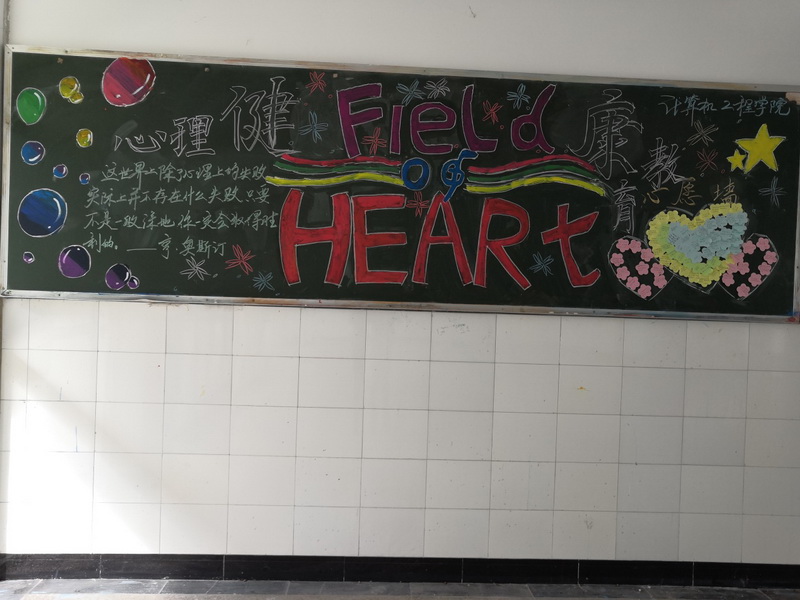 计算机工程学院
心理健康教育
Field
of
HEARt
这世界上除了心理上的失败
实际上并不存在什么失败,只要
不是一败涂地,你一定会取得胜
利的。——亨·奥斯汀
心愿墙